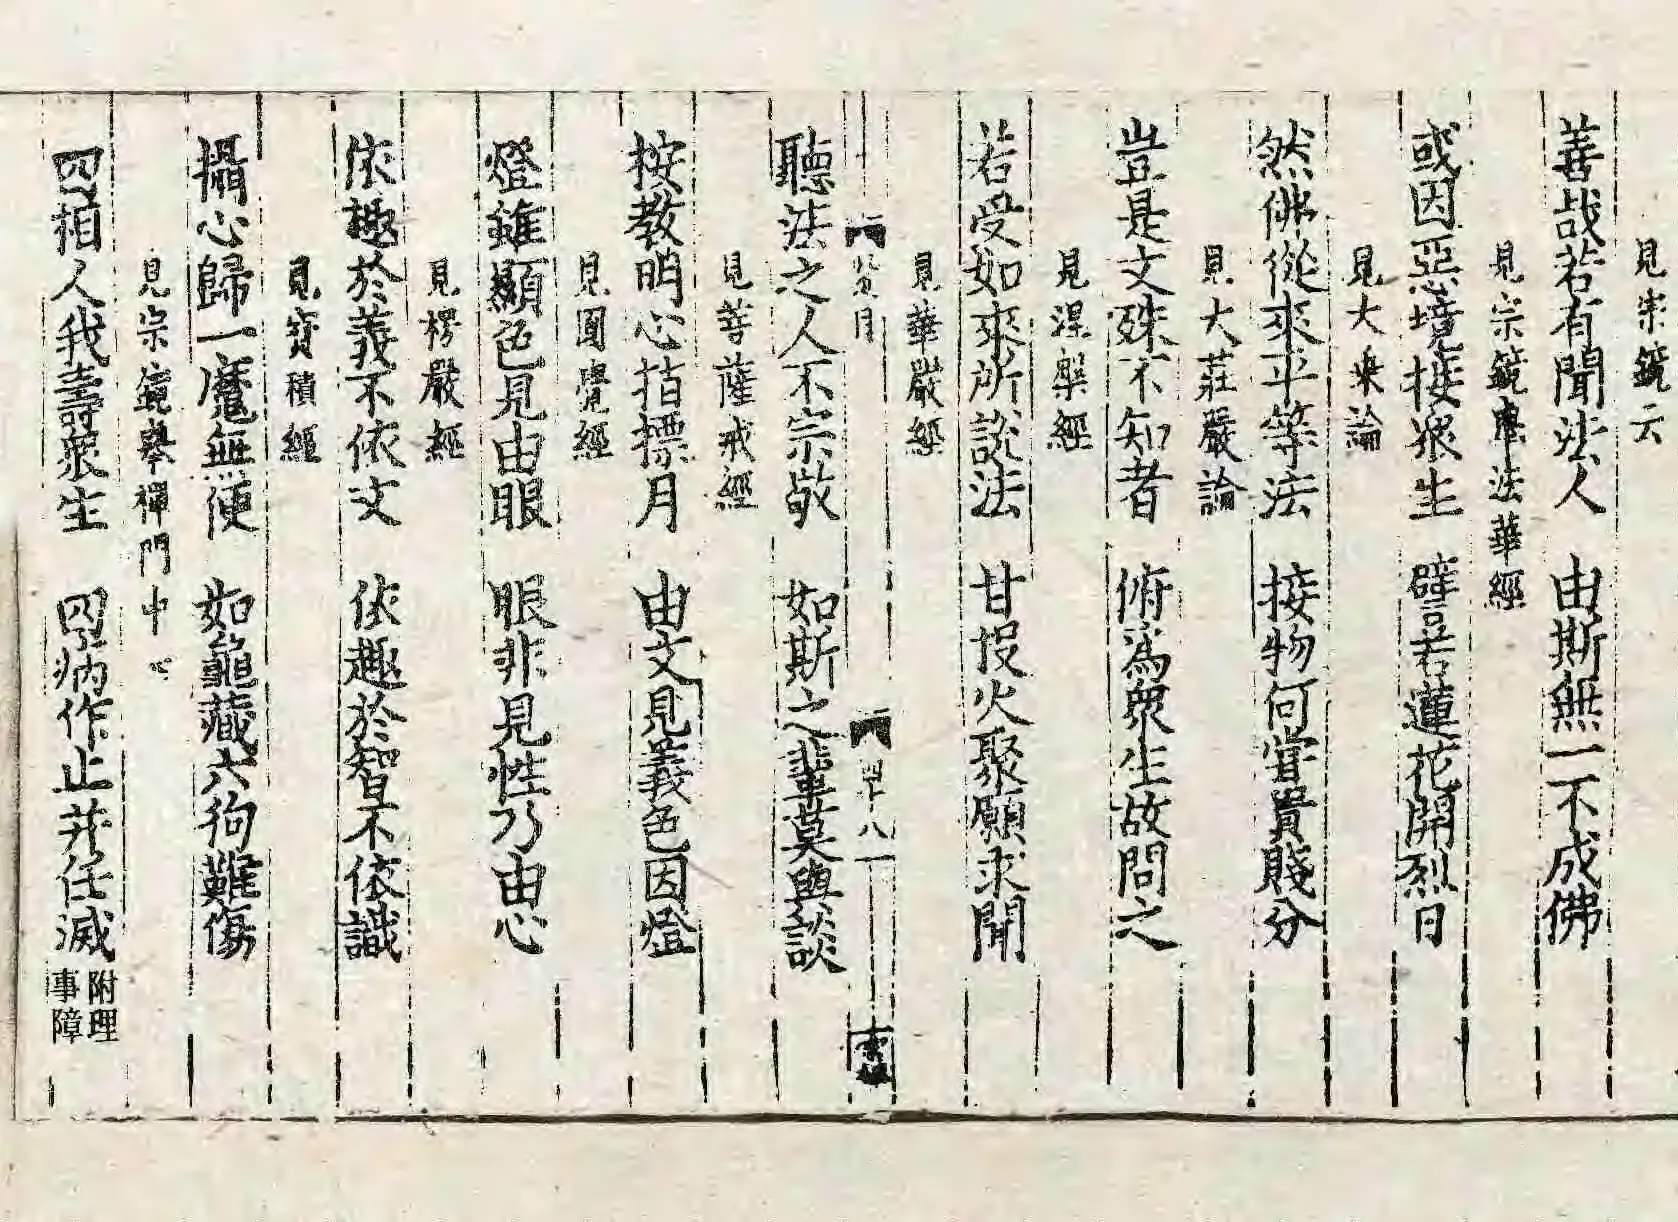 見宗鏡云
善哉若有聞法人　由斯無一不成佛
見宗鏡 法華經
或因惡境接衆生　譬若蓮花開烈日
見大乗論
然佛從來平等法　接物何甞貴賤分
見大莊嚴論
豈是文殊不知者　俯為衆生故問之
見涅槃經
若受如來所說法　甘投火聚願求聞
見華嚴經
四十八
聽法之人不宗敬　如斯之輩莫與談
見菩薩戒經
按教明心指標月　由文見義色因燈
見圓覺經
燈雖顯色見由眼　眼非見性乃由心
見楞嚴經
依趣於義不依文　依趣於智不依識
見寳積經
攝心歸一魔無便　如龜藏六狗難傷
見宗鏡舉禪門中
四相人我壽衆生　四病作止并任滅 附理事障